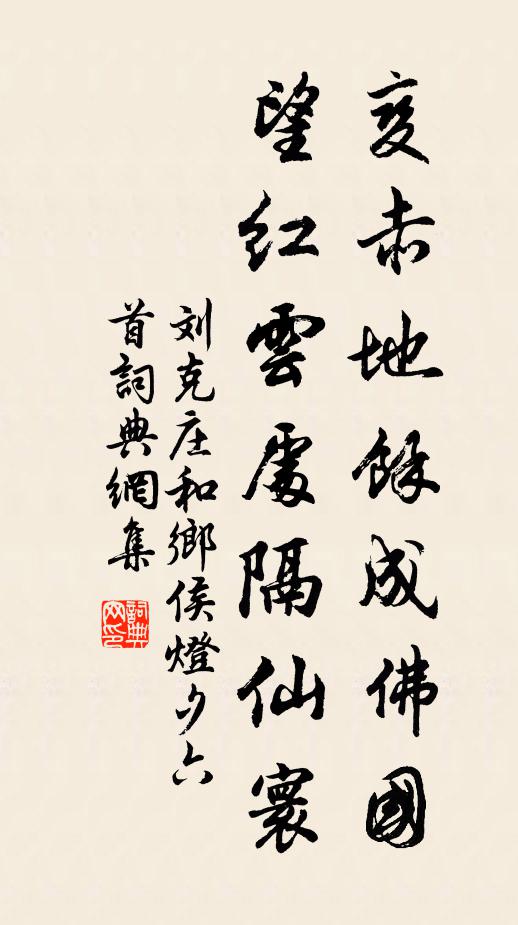 变赤地餘成佛國
望紅雲處隔仙寰
刘克庄和鄉侯燈夕六
首詞典網集
詞典
网印